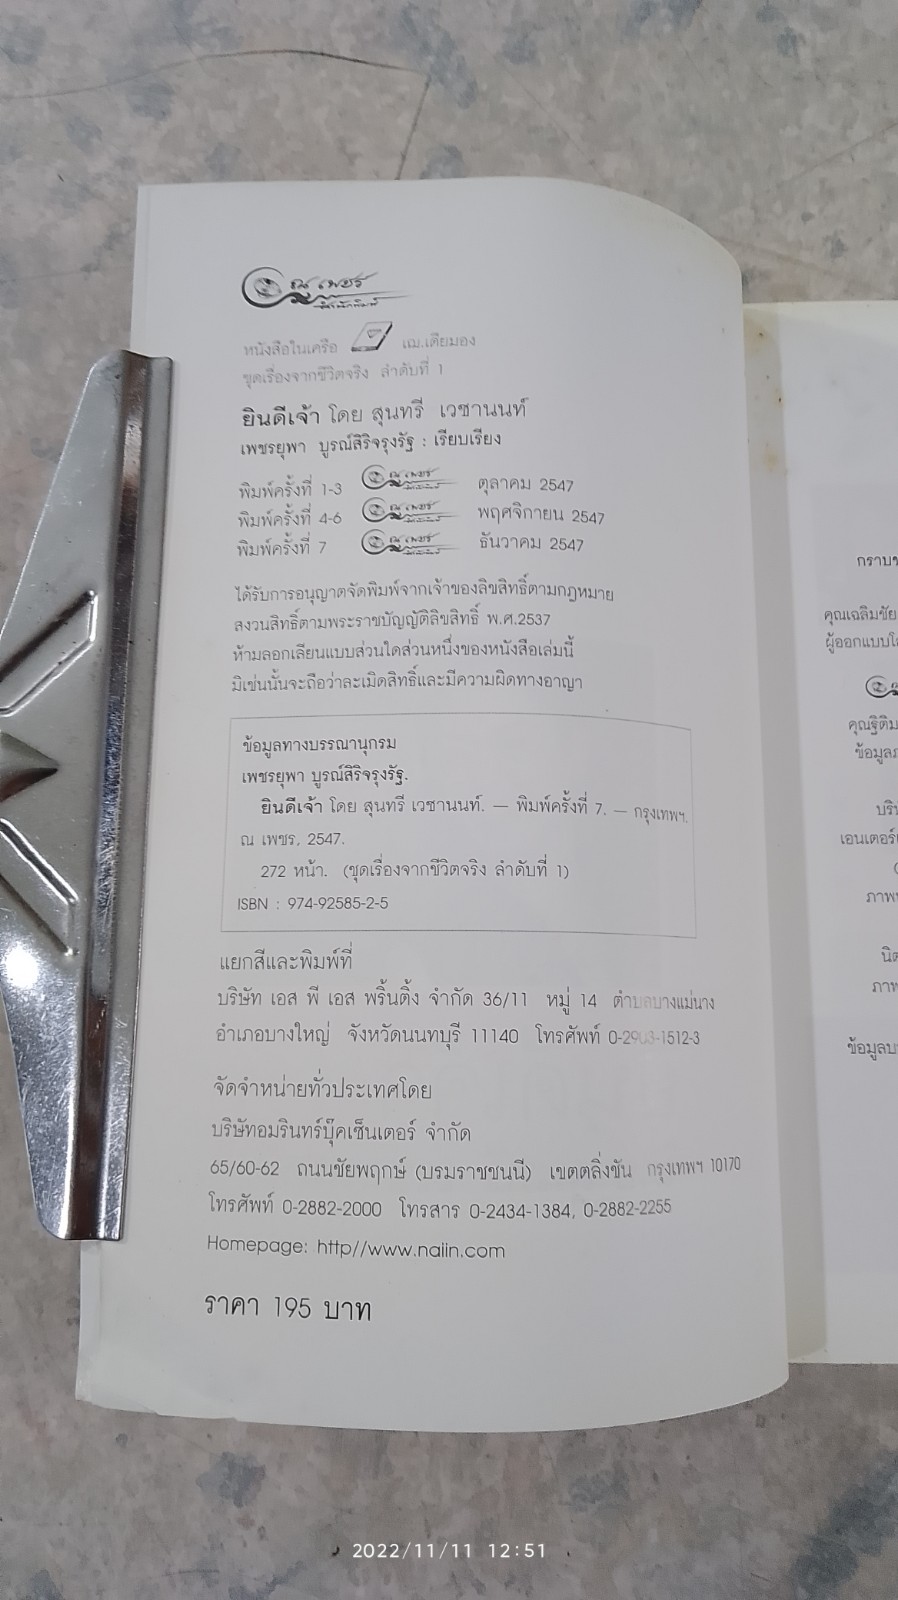 ณ เพชร
สำนักพิมพ์
หนังสือในเครือ เฌ.เดียมอง
ชุดเรื่องจากชีวิตจริง ลำดับที่ 1
ยินดีเจ้า โดย สุนทรี เวชานนท์
เพชรยุพา บูรณ์สิริจรุงรัฐ : เรียบเรียง
พิมพ์ครั้งที่ 1-3 ณ เพชร ตุลาคม 2547
พิมพ์ครั้งที่ 4-6 ณ เพชร พฤศจิกายน 2547
พิมพ์ครั้งที่ 7 ณ เพชร ธันวาคม 2547
ได้รับการอนุญาตจัดพิมพ์จากเจ้าของลิขสิทธิ์ตามกฎหมาย
สงวนสิทธิ์ตามพระราชบัญญัติลิขสิทธิ์ พ.ศ.2537
ห้ามลอกเลียนแบบส่วนใดส่วนหนึ่งของหนังสือเล่มนี้
มิเช่นนั้นจะถือว่าละเมิดสิทธิ์และมีความผิดทางอาญา
ข้อมูลทางบรรณานุกรม
เพชรยุพา บูรณ์สิริจรุงรัฐ.
ยินดีเจ้า โดย สุนทรี เวชานนท์. — พิมพ์ครั้งที่ 7. — กรุงเทพฯ.
ณ เพชร, 2547.
272 หน้า. (ชุดเรื่องจากชีวิตจริง ลำดับที่ 1)
ISBN : 974-92585-2-5
แยกสีและพิมพ์ที่
บริษัท เอส พี เอส พริ้นติ้ง จำกัด 36/11 หมู่ 14 ตำบลบางแม่นาง
อำเภอบางใหญ่ จังหวัดนนทบุรี 11140 โทรศัพท์ 0-2903-1512-3
จัดจำหน่ายทั่วประเทศโดย
บริษัทอมรินทร์บุ๊คเซ็นเตอร์ จำกัด
65/60-62 ถนนชัยพฤกษ์ (บรมราชชนนี) เขตตลิ่งชัน กรุงเทพฯ 10170
โทรศัพท์ 0-2882-2000 โทรสาร 0-2434-1384, 0-2882-2255
Homepage: http//www.naiin.com
ราคา 195 บาท
กราบ
คุณเฉลิมชัย
ผู้ออกแบบ
คุณฐิติม
ข้อมูล
บริ
เอนเตอร์
ภาพ
นิต
ภาพ
ข้อมูลบ
2022/11/11 12:51